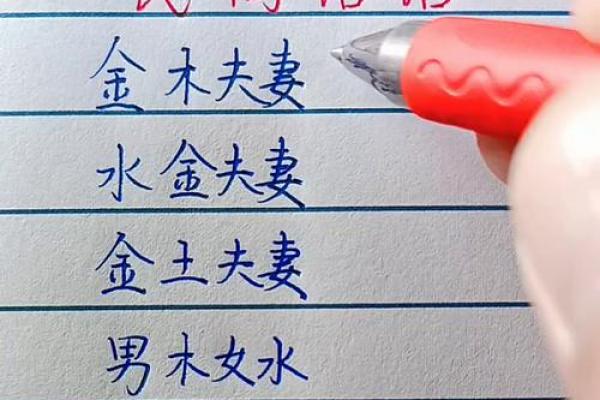 金木夫妻
水金夫妻
金土夫妻
男木女水